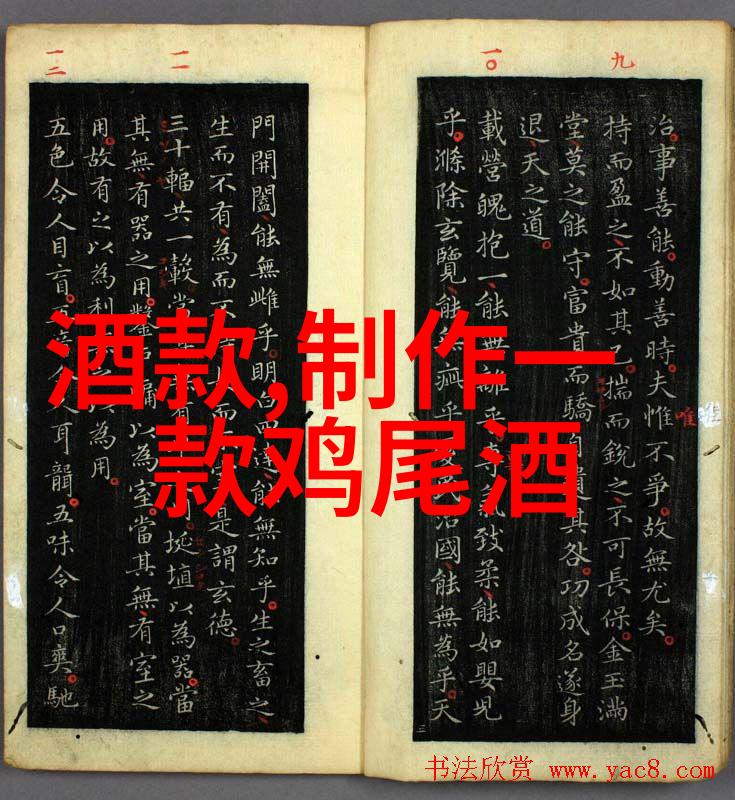 九
治事善能。動善時。夫惟不爭。故無尤矣。
唯
持而盈之不如其已。揣而銳之不可長保。金玉滿
堂莫之能守。富貴而驕自遺其咎。功成名遂身
退天之道。
一〇
載營魄抱一能無離乎。氣致柔能如嬰兒
乎。滌除玄覽能無疵乎。民治國能無為乎。天
一一
門開闔能無雌乎。明白四達能無知乎。生之畜之
生而不有為而不是謂玄德。
三十輻共一轂當有埏埴以為器當
其無有器之用。鑿戶牖以為室。當其無有室之
用。故有之以為利之以為用。
一二
五色令人目盲。五音令人耳聾。五味令人口爽。馳
酒款,制作一
款鸡尾酒
书法欣赏 www.yac8.com